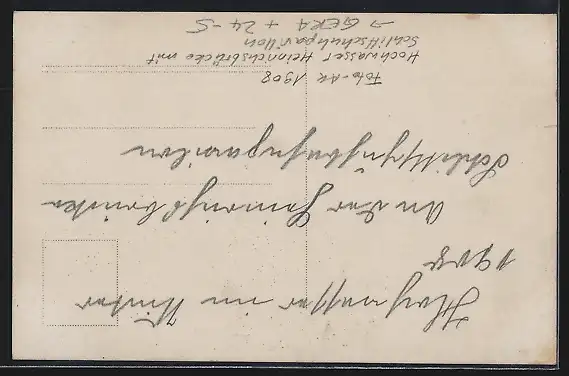 Hochwasser im Winter
1908
An der Heinrichsbrücke
Schlittschuhpavillon
Foto-AK 1908
Hochwasser Heinrichsbrücke mit
Schlittschuhpavillon
→ GERA + 24-S